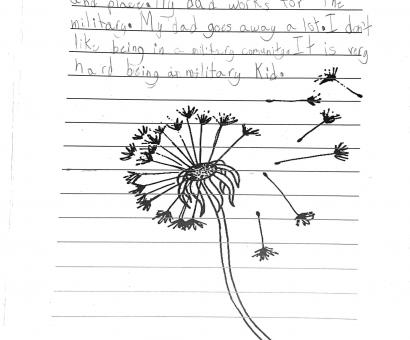 and place. My dad works for the
military. My dad goes away a lot. I don't
like being in a military comunity. It is very
hard being a military Kid.